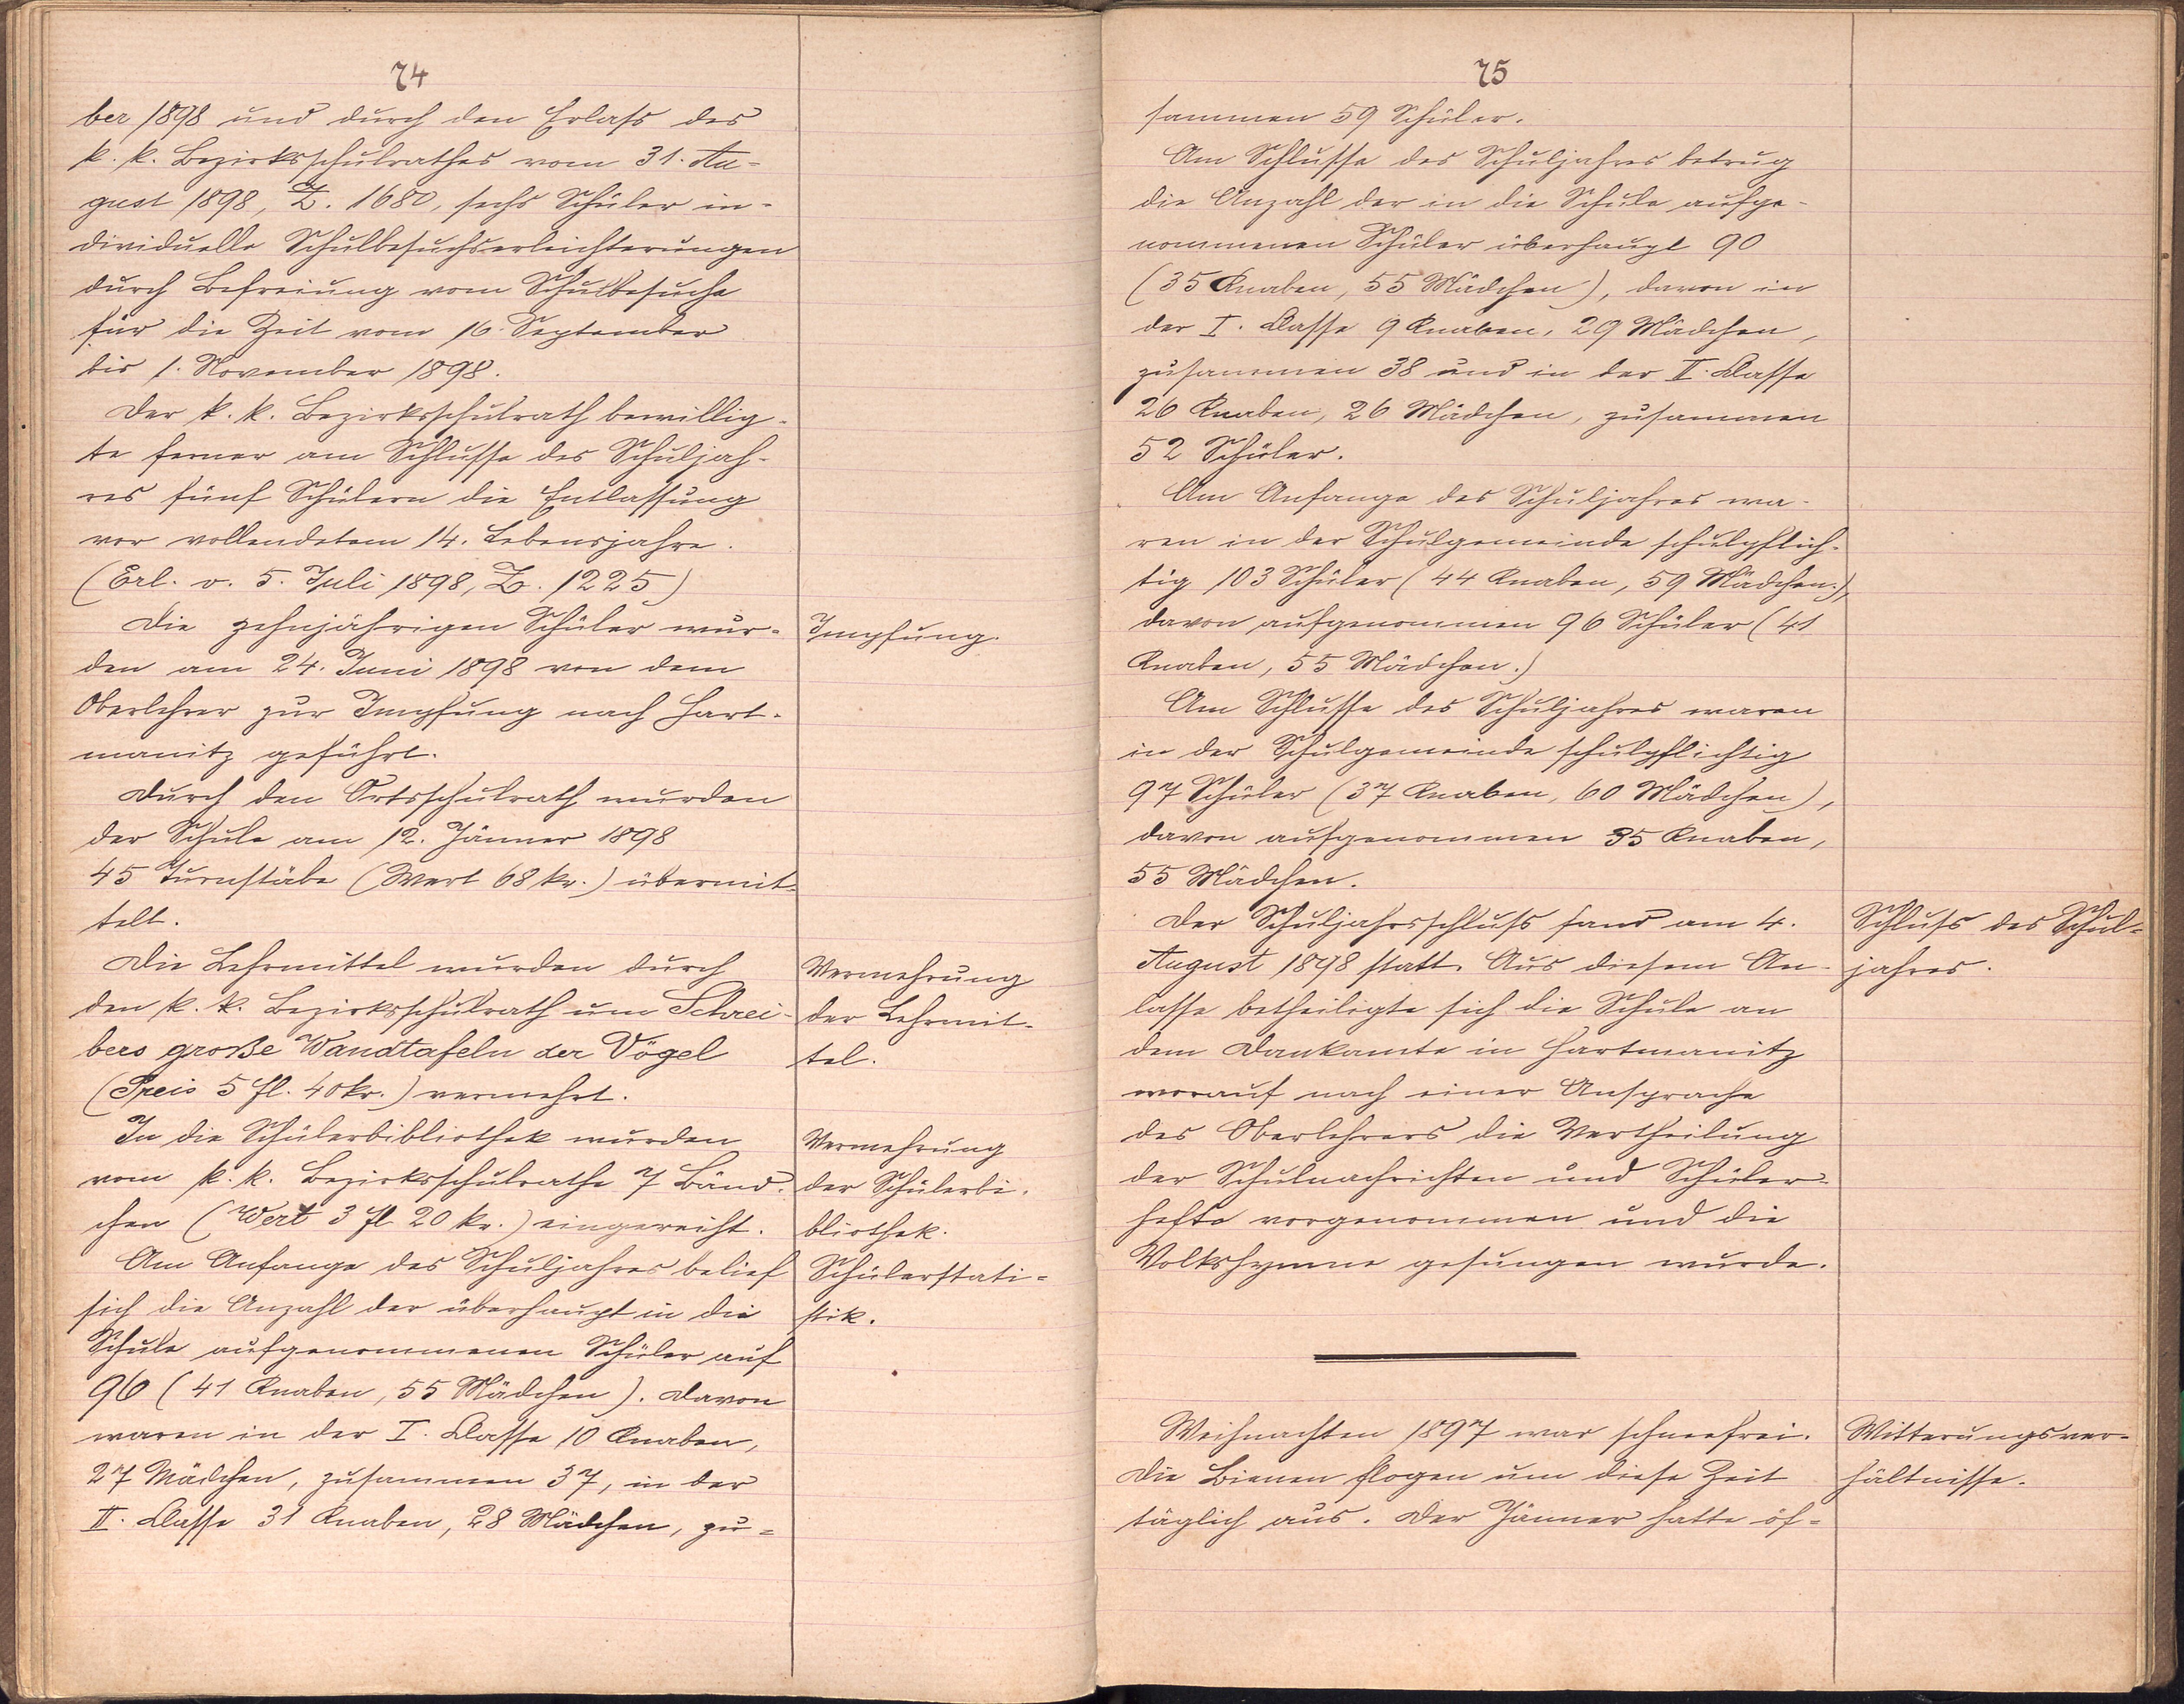 74
ber 1898 und durch den Erlass des
k. k. Bezirksschulrathes vom 31. Au-
gust 1898, Z. 1680, sechs Schüler in-
dividuelle Schulbesuchserleichterungen
durch Befreiung vom Schulbesuche
für die Zeit vom 16. September
bis 1. November 1898.
Der k. k. Bezirksschulrath bewillig-
te ferner am Schlusse des Schuljah-
res fünf Schülern die Entlassung
vor vollendetem 14. Lebensjahre.
(Erl. v. 5. Juli 1898, Z. 1225)
Die zehnjährigen Schüler wur-
den am 24. Juni 1898 von dem
Oberlehrer zur Impfung nach Hart-
manitz geführt.
Impfung.
Durch den Ortsschulrath wurden
der Schule am 12. Jänner 1898
45 Turnstäbe (Wert 68 kr.) übermit-
telt.
Die Lehrmittel wurden durch
den k. k. Bezirksschulrath um Schrei-
bers große Wandtafeln der Vögel
(Preis 5 fl. 40 kr.) vermehrt.
Vermehrung
der Lehrmit-
tel.
In die Schülerbibliothek wurden
vom k. k. Bezirksschulrathe 7 Bänd-
chen (Wert 3 fl 20 kr.) eingereiht.
Vermehrung
der Schülerbi-
bliothek.
Am Anfange des Schuljahres belief
sich die Anzahl der überhaupt in die
Schule aufgenommenen Schüler auf
96 (41 Knaben, 55 Mädchen). Davon
waren in der I. Classe 10 Knaben,
27 Mädchen, zusammen 37, in der
II. Classe 31 Knaben, 28 Mädchen, zu-
Schülerstati-
stik.
75
sammen 59 Schüler.
Am Schlusse des Schuljahres betrug
die Anzahl der in die Schule aufge-
nommenen Schüler überhaupt 90
(35 Knaben, 55 Mädchen), davon in
der I. Classe 9 Knaben, 29 Mädchen,
zusammen 38 und in der II. Classe
26 Knaben, 26 Mädchen, zusammen
52 Schüler.
Am Anfange des Schuljahres wa-
ren in der Schulgemeinde schulpflich-
tig 103 Schüler (44 Knaben, 59 Mädchen.),
davon aufgenommen 96 Schüler (41
Knaben, 55 Mädchen.)
Am Schlusse des Schuljahres waren
in der Schulgemeinde schulpflichtig
97 Schüler (37 Knaben, 60 Mädchen),
davon aufgenommen 35 Knaben,
55 Mädchen.
Der Schuljahrsschluss fand am 4.
August 1898 statt. Aus diesem An-
lasse betheiligte sich die Schule an
dem Dankamte in Hartmanitz
worauf nach einer Ansprache
des Oberlehrers die Vertheilung
der Schulnachrichten und Schüler-
hefte vorgenommen und die
Volkshymne gesungen wurde.
Schluss des Schul-
jahres.
Weihnachten 1897 war schneefrei.
Die Bienen flogen um diese Zeit
täglich aus. Der Jänner hatte öf-
Witterungsver-
hältnisse.